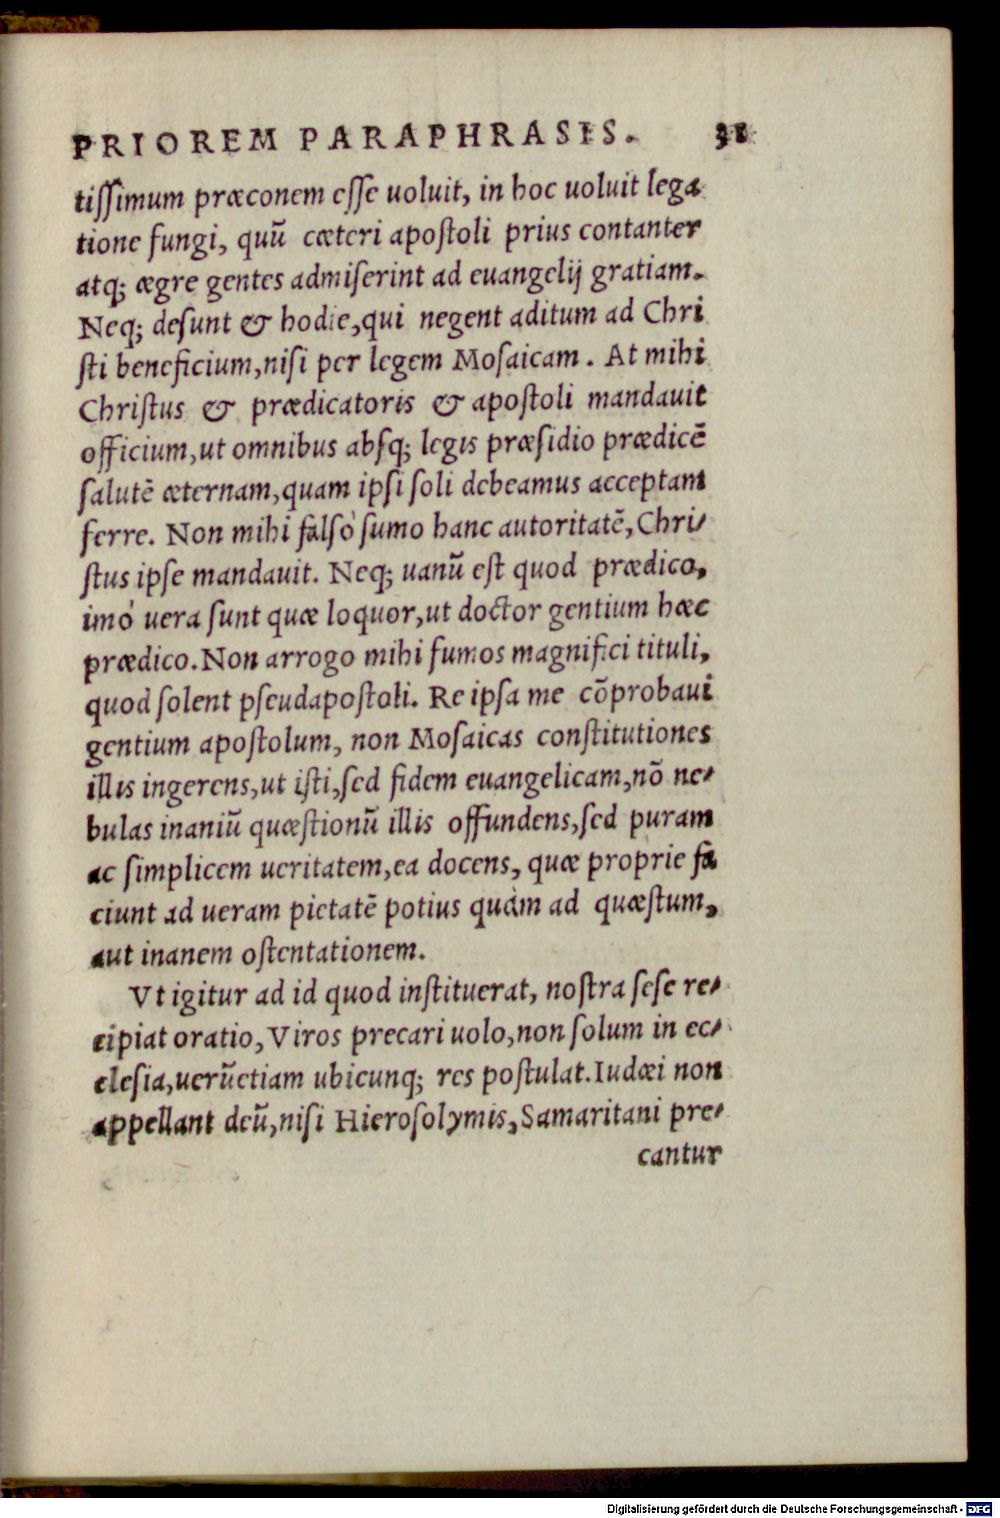 PRIOREM PARAPHRASIS. 31
tiſſimum præconem eſſe uoluit, in hoc uoluit lega
tione fungi, quũ cæteri apoſtoli prius contanter
atq; ægre gentes admiſerint ad euangelij gratiam.
Neq; deſunt & hodie, qui negent aditum ad Chri
ſti beneficium, niſi per legem Moſaicam. At mihi
Chriſtus & prædicatoris & apoſtoli mandauit
officium, ut omnibus abſq; legis præſidio prædicẽ
ſalutẽ æternam, quam ipſi ſoli debeamus acceptam
ferre. Non mihi falſò ſumo hanc autoritatẽ, Chri⸗
ſtus ipſe mandauit. Neq; uanũ eſt quod prædico,
imò uera ſunt quæ loquor, ut doctor gentium hæc
prædico. Non arrogo mihi fumos magnifici tituli,
quod ſolent pſeudapoſtoli. Re ipſa me cõprobaui
gentium apoſtolum, non Moſaicas conſtitutiones
illis ingerens, ut iſti, ſed fidem euangelicam, nõ ne⸗
bulas inaniũ quæſtionũ illis offundens, ſed puram
ac ſimplicem ueritatem, ea docens, quæ proprie fa
ciunt ad ueram pietatẽ potius quàm ad quæſtum,
aut inanem oſtentationem.
Vt igitur ad id quod inſtituerat, noſtra ſeſe re⸗
cipiat oratio, Viros precari uolo, non ſolum in ec⸗
cleſia, uerũetiam ubicunq; res poſtulat. Iudæi non
appellant deũ, niſi Hieroſolymis, Samaritani pre⸗
cantur
Digitalisierung gefördert durch die Deutsche Forschungsgemeinschaft - DFG